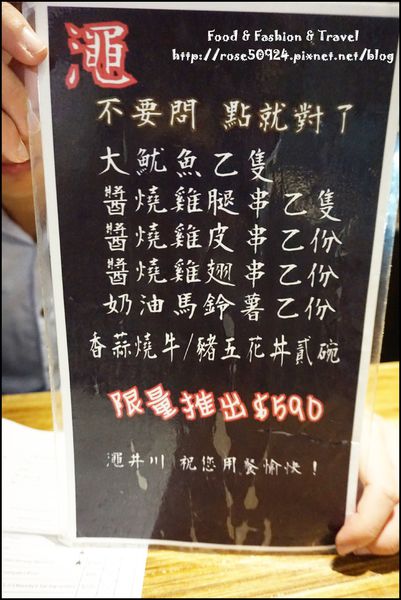 Food & Fashion & Travel
http://rose50924.pixnet.net/blog
澠
不要問 點就對了
大魷魚乙隻
醬燒雞腿串乙隻
醬燒雞皮串乙份
醬燒雞翅串乙份
奶油馬鈴薯乙份
香蒜燒牛/豬五花丼貳碗
限量推出$590
澠井川 祝您用餐愉快！